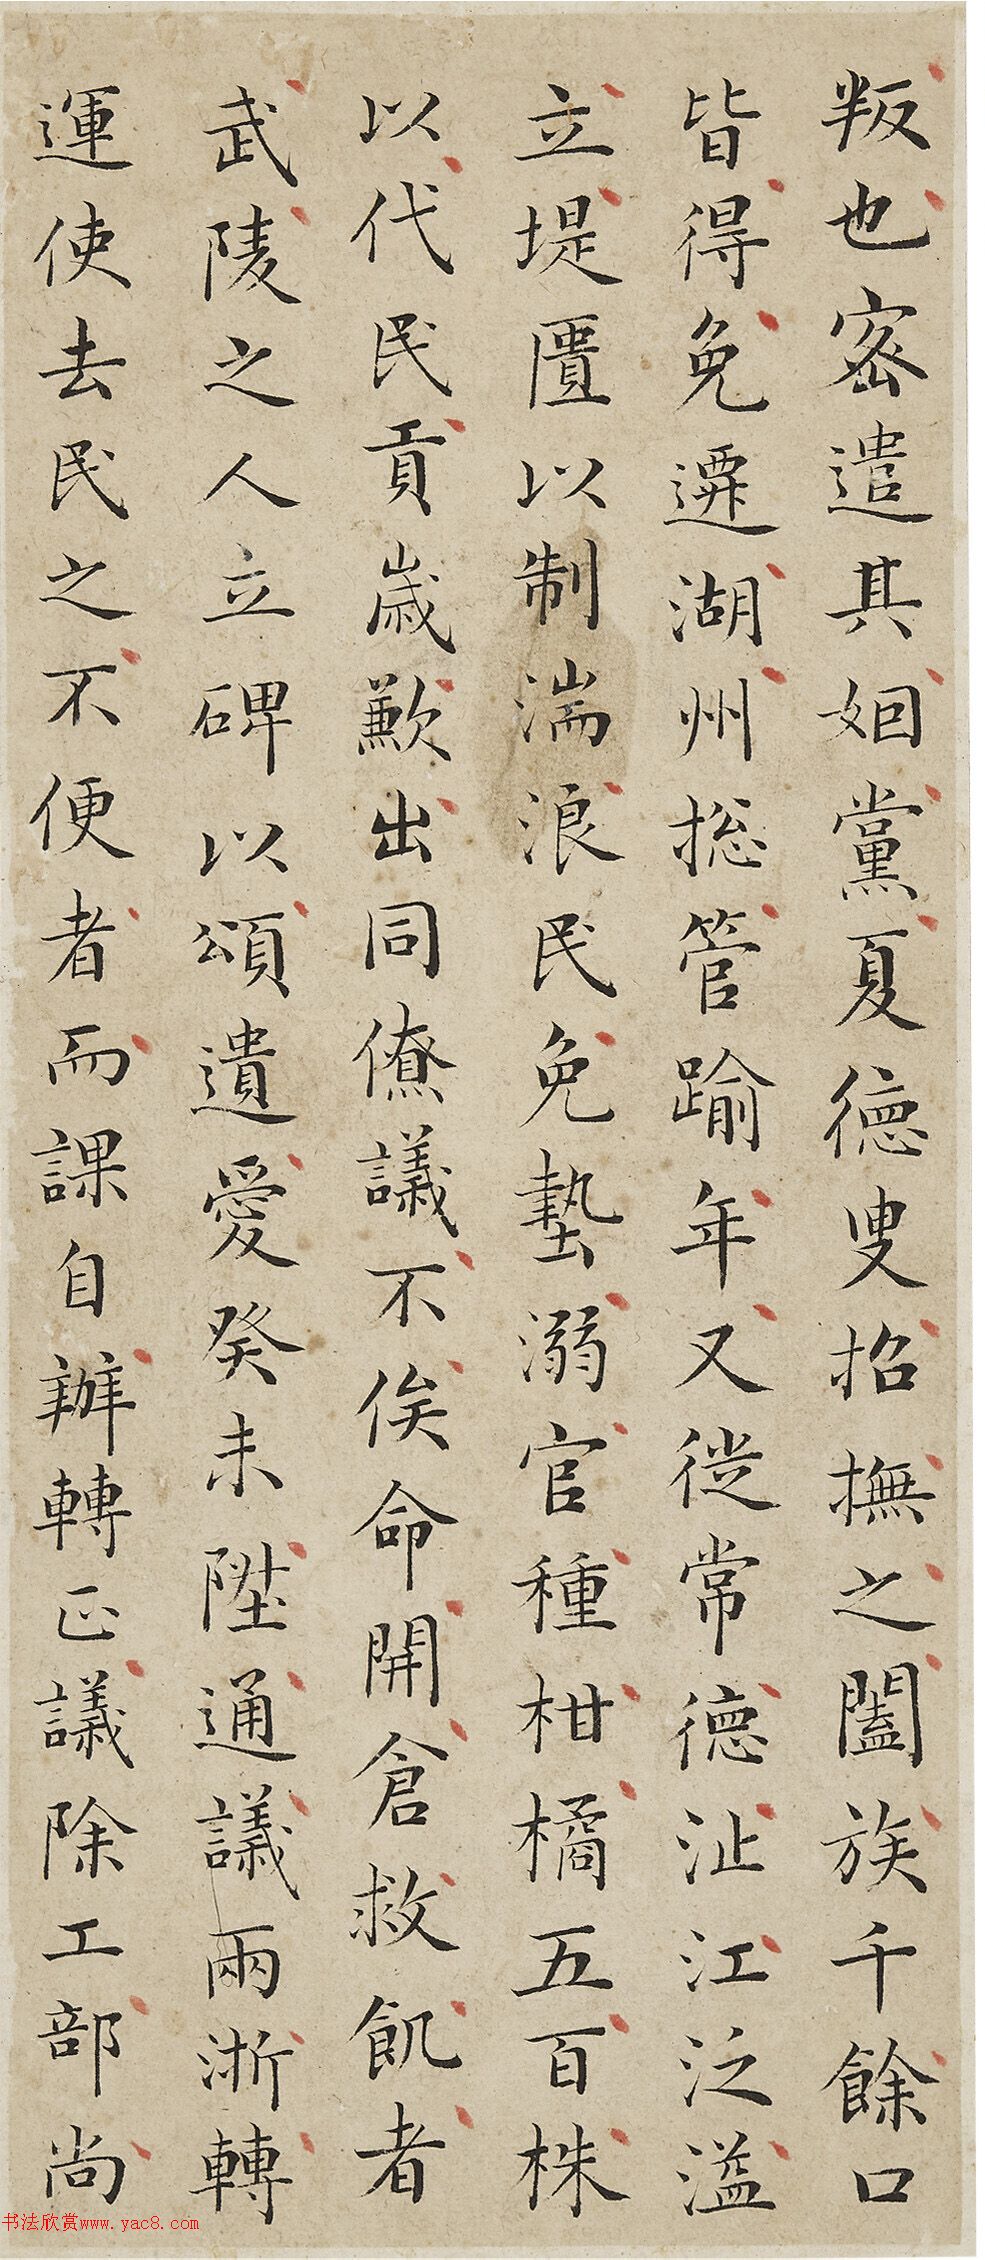 叛也密遣其姻黨夏德叟招撫之闔族千餘口
皆得免遷湖州総管踰年又從常德沚江泛溢
立堤匱以制湍浪民免墊溺官種柑橘五百株
以代民貢歲歉出同僚議不俟命開倉救飢者
武陵之人立碑以頌遺愛癸未陞通議兩浙轉
運使去民之不便者而課自辦轉正議除工部尚
书法欣赏www.yac8.com